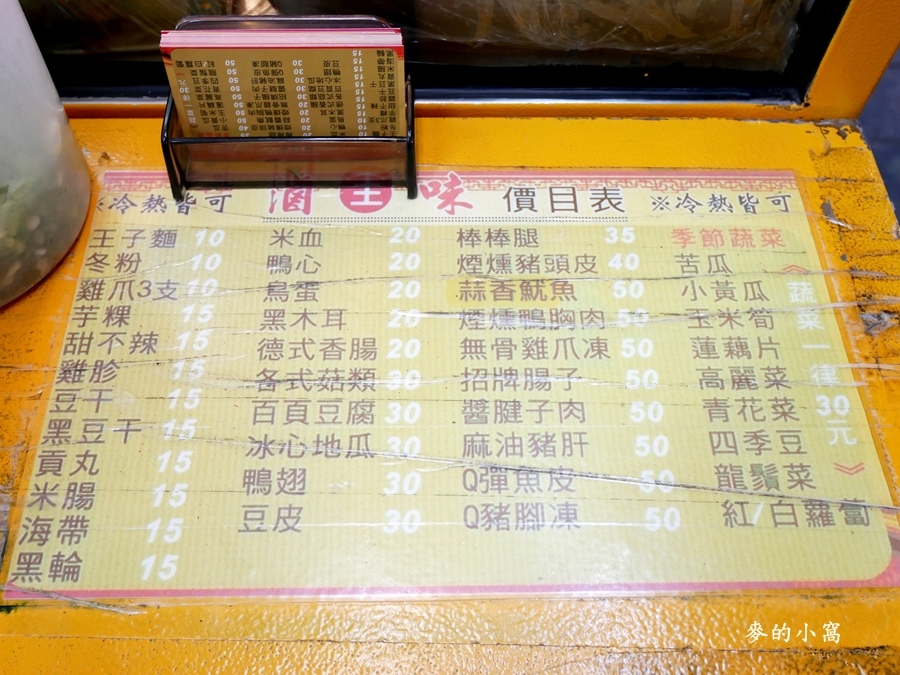 ※冷熱皆可 滷王味 價目表 ※冷熱皆可
王子麵 10
冬粉 10
雞爪3支 10
芋粿 15
甜不辣 15
雞胗 15
豆干 15
黑豆干 15
貢丸 15
米腸 15
海帶 15
黑輪 15
米血 20
鴨心 20
鳥蛋 20
黑木耳 20
德式香腸 20
各式菇類 30
百頁豆腐 30
冰心地瓜 30
鴨翅 30
豆皮 30
棒棒腿 35
煙燻豬頭皮 40
蒜香魷魚 50
煙燻鴨胸肉 50
無骨雞爪凍 50
招牌腸子 50
醬腱子肉 50
麻油豬肝 50
Q彈魚皮 50
Q豬腳凍 50
季節蔬菜
苦瓜
小黃瓜
玉米筍
蓮藕片
高麗菜
青花菜
四季豆
龍鬚菜
紅/白蘿蔔
《蔬菜一律30元》
麥的小窩